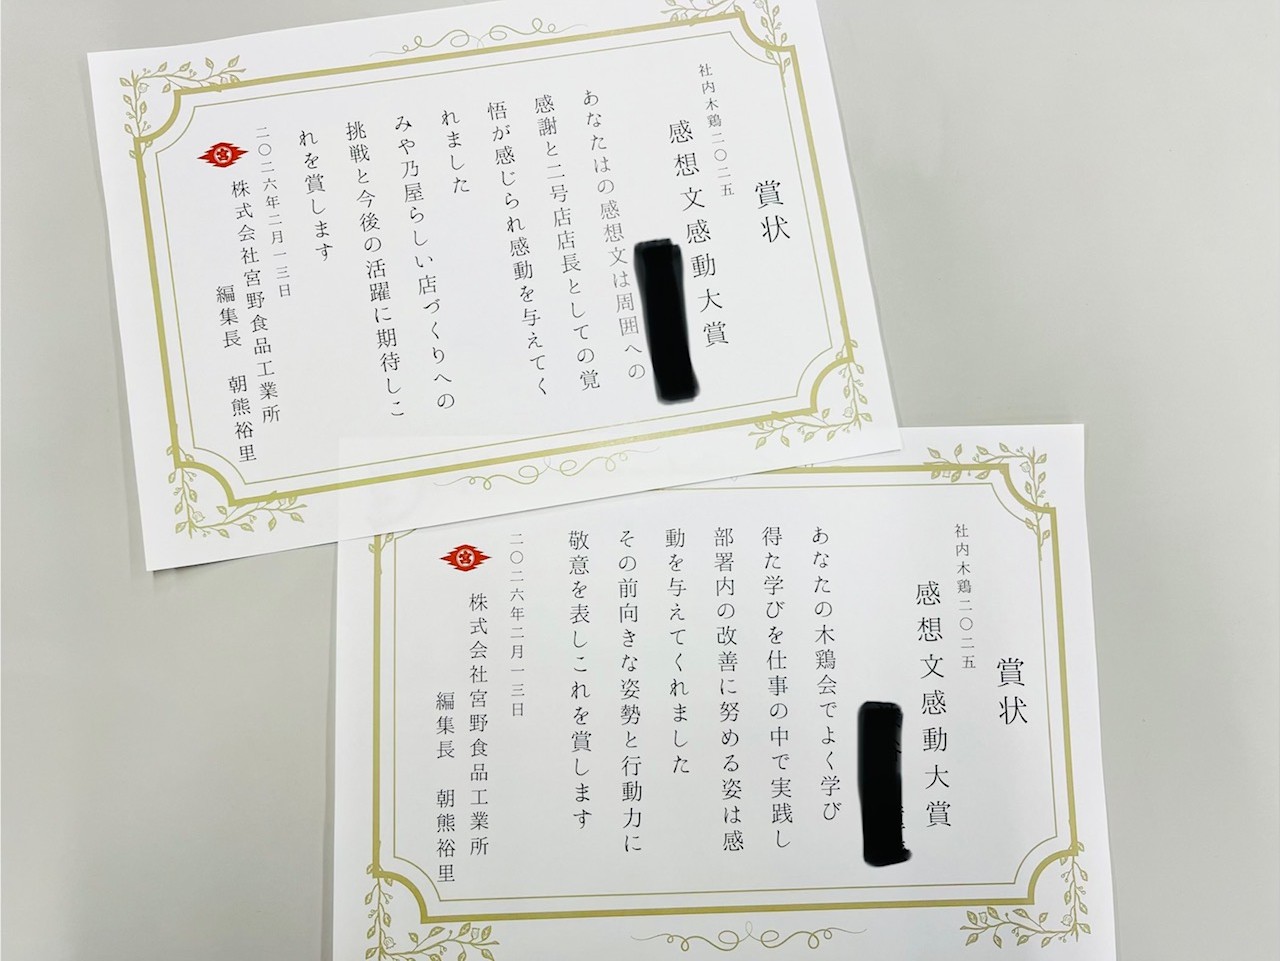 賞状
社内木鶏二〇二五
感想文感動大賞
あなたはの感想文は周囲への
感謝と二号店店長としての覚
悟が感じられ感動を与えてく
れました
みや乃屋らしい店づくりへの
挑戦と今後の活躍に期待しこ
れを賞します
二〇二六年二月一三日
株式会社宮野食品工業所
編集長 朝熊裕里
賞状
社内木鶏二〇二五
感想文感動大賞
あなたの木鶏会でよく学び
得た学びを仕事の中で実践し
部署内の改善に努める姿は感
動を与えてくれました
その前向きな姿勢と行動力に
敬意を表しこれを賞します
二〇二六年二月一三日
株式会社宮野食品工業所
編集長 朝熊裕里